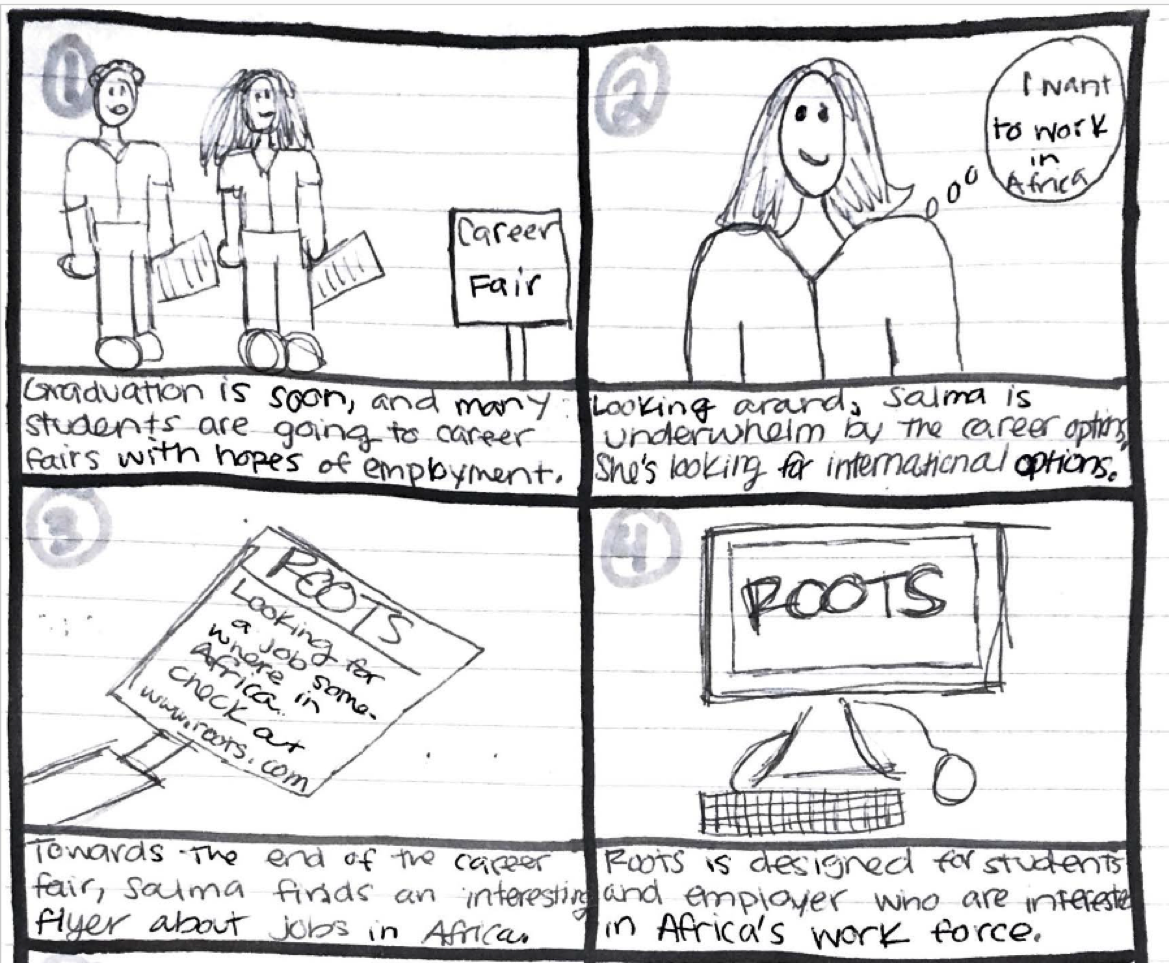 1
Career
Fair
Graduation is soon, and many
students are going to career
fairs with hopes of employment.
2
I want
to work
in
Africa
Looking arand, Salma is
underwhelm by the career options,
She's looking for international options.
3
ROOTS
Looking for
a job some-
where in
Africa..
check out
www.roots.com
Towards the end of the career
fair, Salma finds an interesting
flyer about jobs in Africa.
4
ROOTS
Roots is designed for students
and employer who are interested
in Africa's work force.